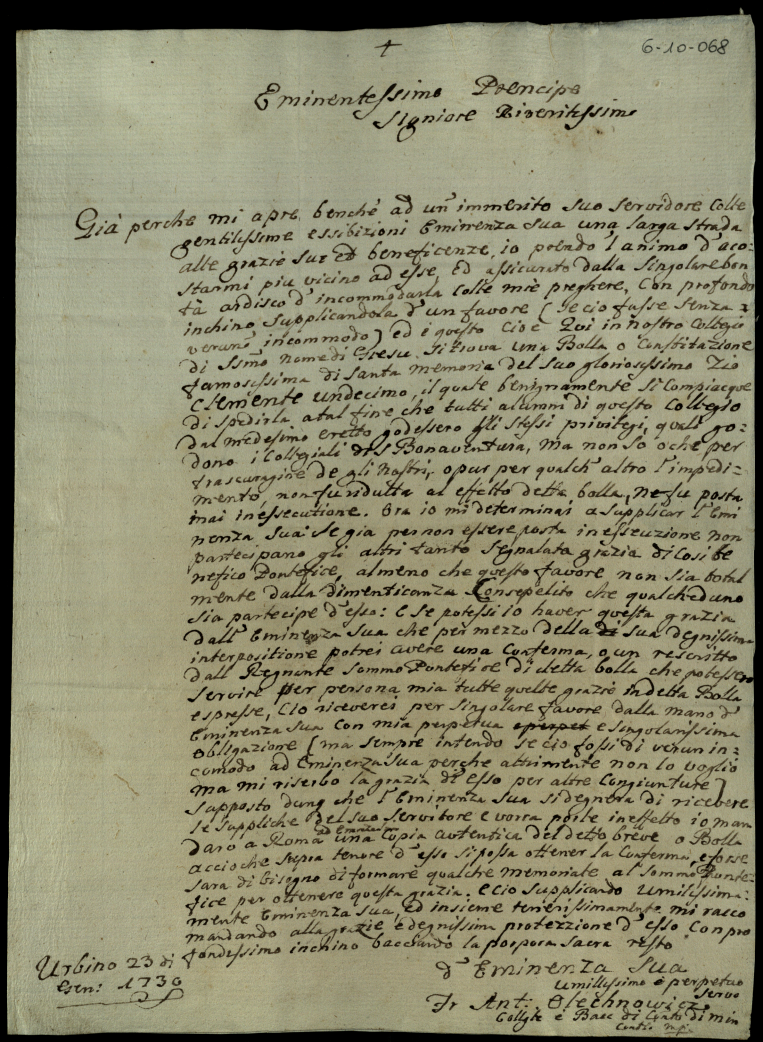 +
6-10-068
Eminentessimo Prencipe
Signiore Riveritissimo
Già perche mi apre, benché ad un immerito suo servidore colle
gentilissime essibizioni Eminenza Sua una larga strada
alle grazie sue ed beneficenze, io prendo l'animo d'aco=
starmi piu vicino ad esse, Ed assicurato dalla singolare bon
tà ardisco d'incommodarla colle mie preghere, Con profondo
inchino supplicandola d'un favore (se cio fusse senza
verun incommodo) ed è questo cioè Qui in nostro Collegio
di SSmo nome di Giesu si trova una Bolla o Constitazione
famosissima di Santa memoria del suo gloriosissimo Zio
Clemente undecimo, il quale benignamente si Compiacque
di spedirla a tal fine che tutti alumni di questo Collegio
dal medesimo eretto godessero gli stessi privilegi, quali go=
dono i Collegiali di S Bonaventura, ma non so o che per
trascuragine de gli Nostri, o pur per qualch altro l'impedi=
mento, non fu ridutta al effetto detta bolla, ne fu posta
mai in essecutione. Ora io mi determinai a supplicar l'Emi
nenza Sua: se gia per non essere posta in essecuzione non
partecipano gli altri tanto segnalata grazia di cosi be
nefico Pontefice, almeno che questo favore non sia total
mente dalla dimenticanza Consepelito che qualcheduno
sia partecipe d'esso: E se potessi io haver questa grazia
dall' Eminenza Sua che per mezzo della di sua degnissima
interpositione potrei avere una Conferma, o un rescritto
dall Regnante Sommo Pontefice di detta bolla che potessero
servire per persona mia tutte quelle grazie in detta Bolla
espresse, Cio riceverei per singolare favore dalla mano d'
Eminenza Sua Con mia perpetua e perpet e singolarissima
obligazione (ma sempre intendo se cio fossi di verun in=
comodo ad Eminenza Sua perche altrimente non lo voglio
ma mi riserbo la grazia di esso per altre Congiunture)
Supposto dunq che l'Eminenza Sua si degnera di ricevere
le suppliche del suo servitore e vorra porle in effetto io man
daro a Roma ad Eminenza una Copia autentica del detto breve o Bolla
accioche supra tenore d'esso si possa ottener la Conferma, e forse
sara di bisogno di formare qualche memoriale al Sommo Ponte=
fice per ottenere questa grazia. E cio supplicando Umilissima=
mente Eminenza Sua, ed insieme tenerissimamente mi racco
mandando alla grazie e degnissima protezzione d'esso Con pro
fondissimo inchino bacciando la porpora sacra resto
Urbino 23 di
Gen: 1730
d' Eminenza Sua
umilissimo e perpetuo
servo
Fr Ant: Olechnowicz
Colleg e Bacc di Conti di min